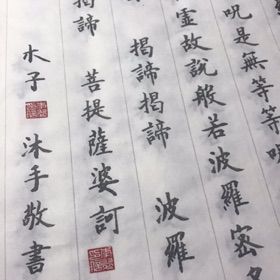 呪是無等等呪
虛故說般若波羅密
揭諦揭諦 波羅
揭諦 菩提薩婆訶
木子 沐手敬書